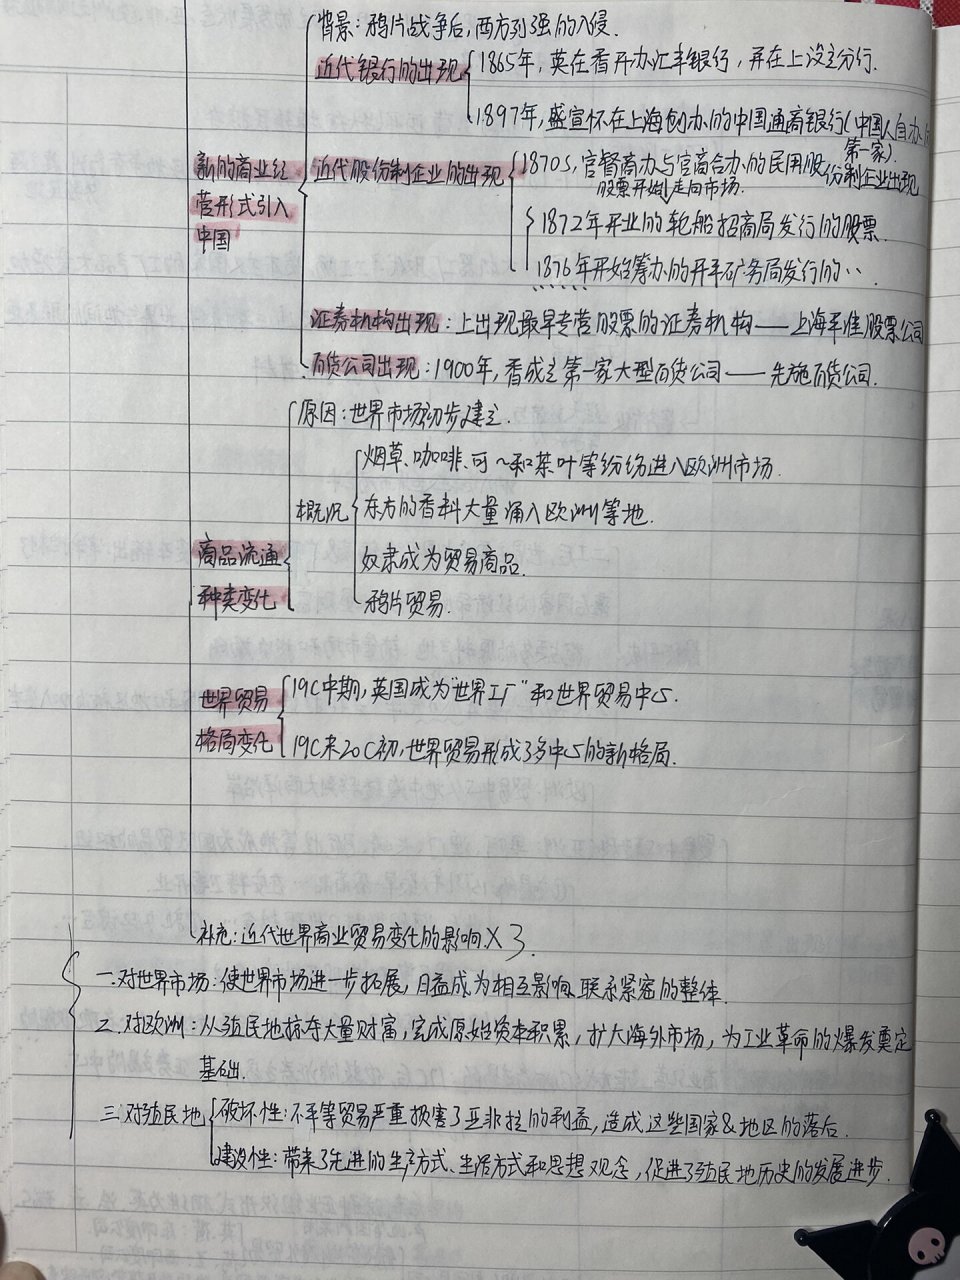 背景：鸦片战争后，西方列强的入侵.
近代银行的出现 1865年，英在香开办汇丰银行，并在上设立分行.
1897年，盛宣怀在上海创办的中国通商银行(中国人自办的
第一家).
新的商业经 近代股份制企业的出现 1870s，官督商办与官商合办的民用股份制企业出现
营形式引入 股票开始走向市场.
中国 1872年开业的轮船招商局发行的股票.
1876年开始筹办的开平矿务局发行的··
证券机构出现：上出现最早专营股票的证券机构——上海平准股票公司
百货公司出现：1900年，香成立第一家大型百货公司——先施百货公司.
原因：世界市场初步建立.
烟草、咖啡、可~和茶叶等纷纷进入欧洲市场.
概况 东方的香料大量涌入欧洲等地.
商品流通 奴隶成为贸易商品.
种类变化 鸦片贸易.
世界贸易 19C中期，英国成为"世界工厂"和世界贸易中心.
格局变化 19C末20C初，世界贸易形成了多中心的新格局.
补充：近代世界商业贸易变化的影响×3
一.对世界市场：使世界市场进一步拓展，日益成为相互影响、联系紧密的整体.
二.对欧洲：从殖民地掠夺大量财富，完成原始资本积累，扩大海外市场，为工业革命的爆发奠定
基础.
三.对殖民地 破坏性：不平等贸易严重损害了亚非拉的利益，造成这些国家&地区的落后.
建设性：带来了先进的生产方式、生活方式和思想观念，促进了殖民地历史的发展进步.